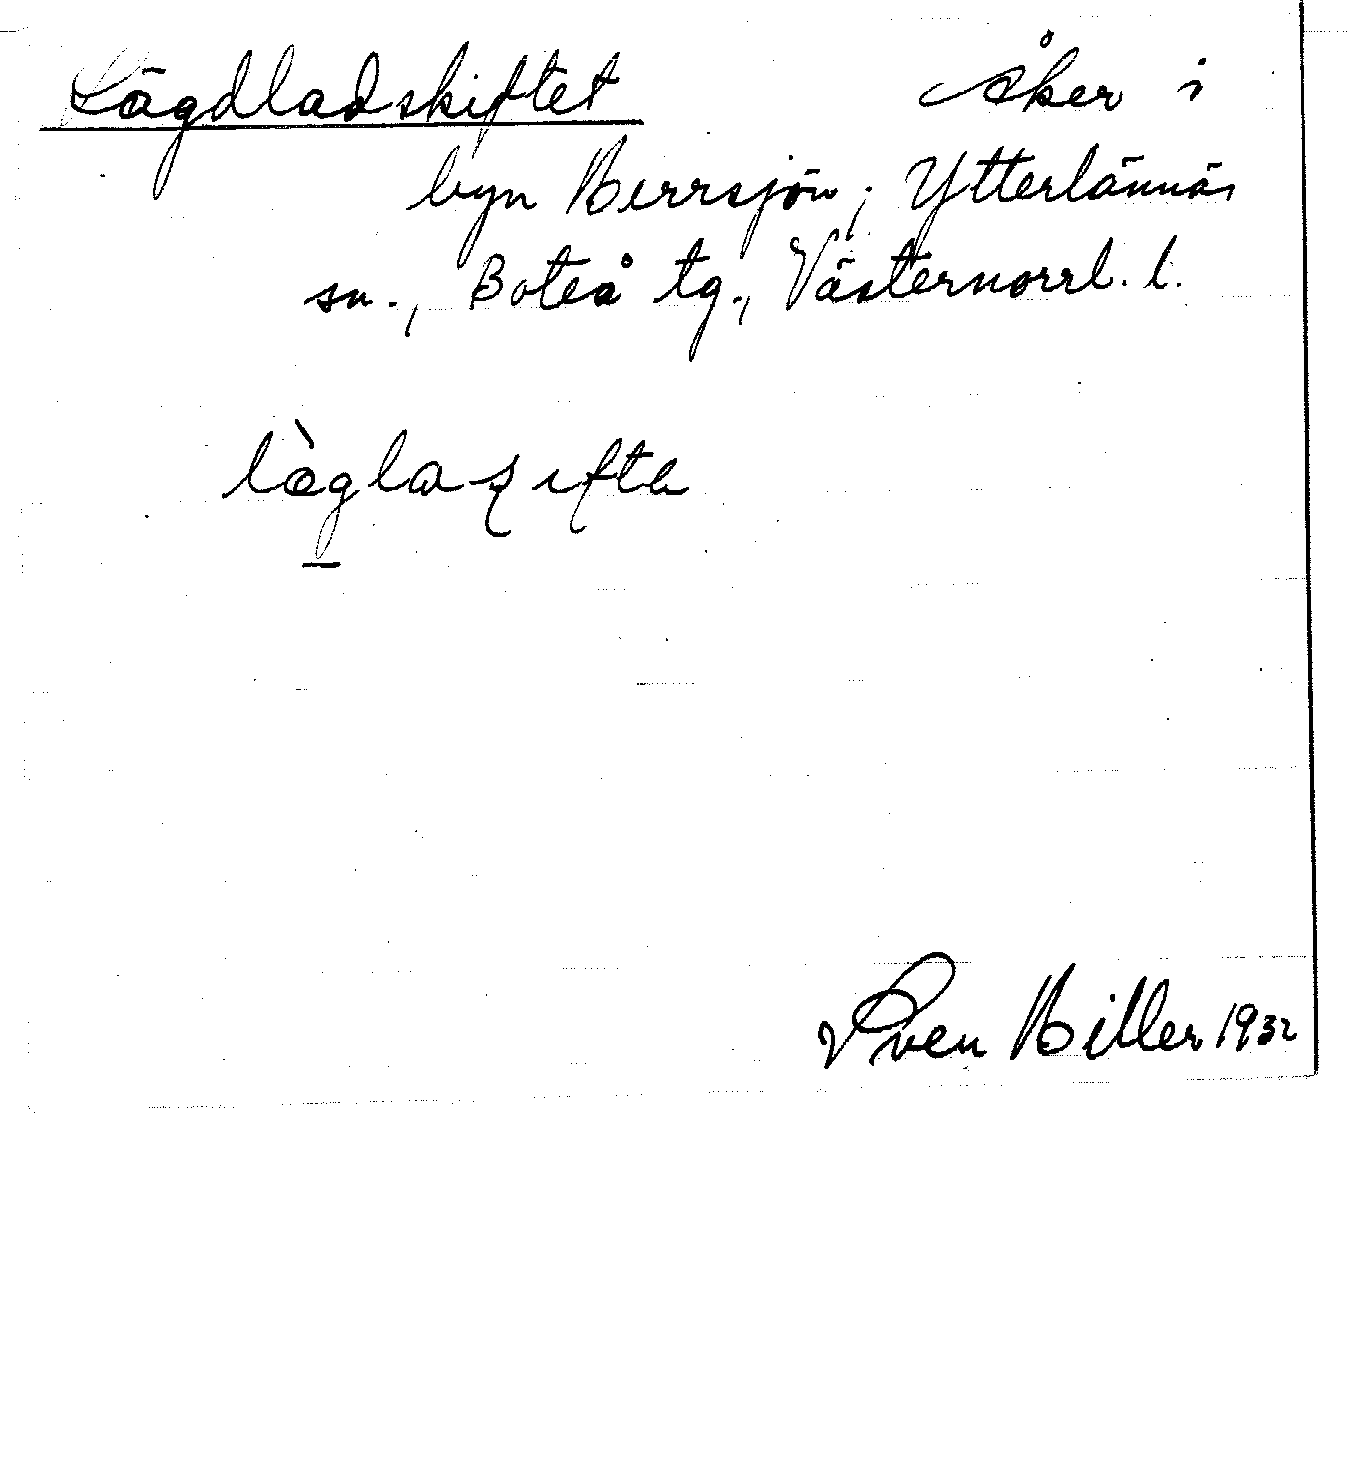 Lägdladskiftet Åker i
byn Herrsjön, Ytterlännäs
sn., Boteå tg., Västernorrl. l.
Sven Hiller 1932